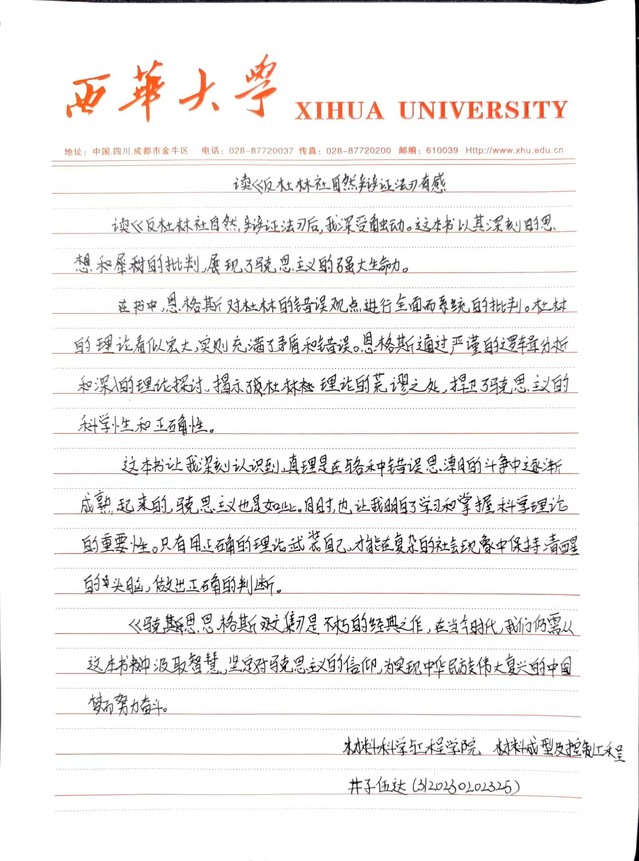 西華大學 XIHUA UNIVERSITY
地址：中国.四川.成都市金牛区 电话：028-87720037 传真：028-87720200 邮编：610039 Http://www.xhu.edu.cn
读《反杜林社自然辩证法》有感
读《反杜林社自然辩证法》后，我深受触动。这本书以其深刻的思
想和犀利的批判，展现了马克思主义的强大生命力。
在书中，恩格斯对杜林的错误观点进行全面而系统的批判。杜林
的理论看似宏大，实则充满了矛盾和错误。恩格斯通过严谨的逻辑分析
和深入的理论探讨，揭示了杜林理论的荒谬之处，捍卫了马克思主义的
科学性和正确性。
这本书让我深刻认识到，真理是在与各种错误思潮的斗争中逐渐
成熟起来的，马克思主义也是如此。同时，也让我明白了学习和掌握科学理论
的重要性。只有用正确的理论武装自己，才能在复杂的社会现象中保持清醒
的头脑，做出正确的判断。
《马克斯思恩格斯文集》是不朽的经典之作，在当今时代，我们仍需从
这本书中汲取智慧，坚定对马克思主义的信仰，为实现中华民族伟大复兴的中国
梦而努力奋斗。
材料科学与工程学院 材料成型及控制工程
井子伍达（3120230202325）